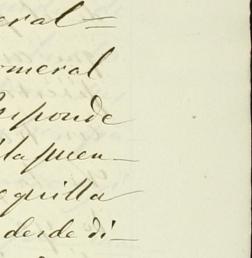 eral=
omeral
esponde
ila puen-
equilla
desde di-